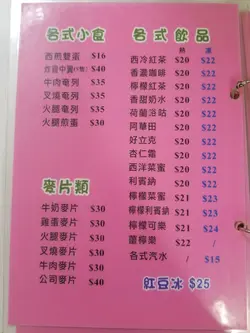 各式小食
西煎雙蛋 $16
炸雞中翼(5隻) $40
牛肉奄列 $35
叉燒奄列 $35
火腿奄列 $35
火腿煎蛋 $30
麥片類
牛奶麥片 $30
雞蛋麥片 $30
火腿麥片 $30
叉燒麥片 $30
牛肉麥片 $30
公司麥片 $40
各式飲品
熱 凍
西冷紅茶 $20 $22
香濃咖啡 $20 $22
檸檬紅茶 $20 $22
香甜奶水 $20 $22
荷蘭浴咕 $20 $22
阿華田 $20 $22
好立克 $20 $22
杏仁霜 $20 $22
西洋菜蜜 $20 $22
利賓納 $20 $22
檸檬菜蜜 $21 $23
檸檬利賓納 $21 $23
檸檬可樂 $21 $24
薑檸樂 $22 /
各式汽水 / $15
紅豆冰 $25